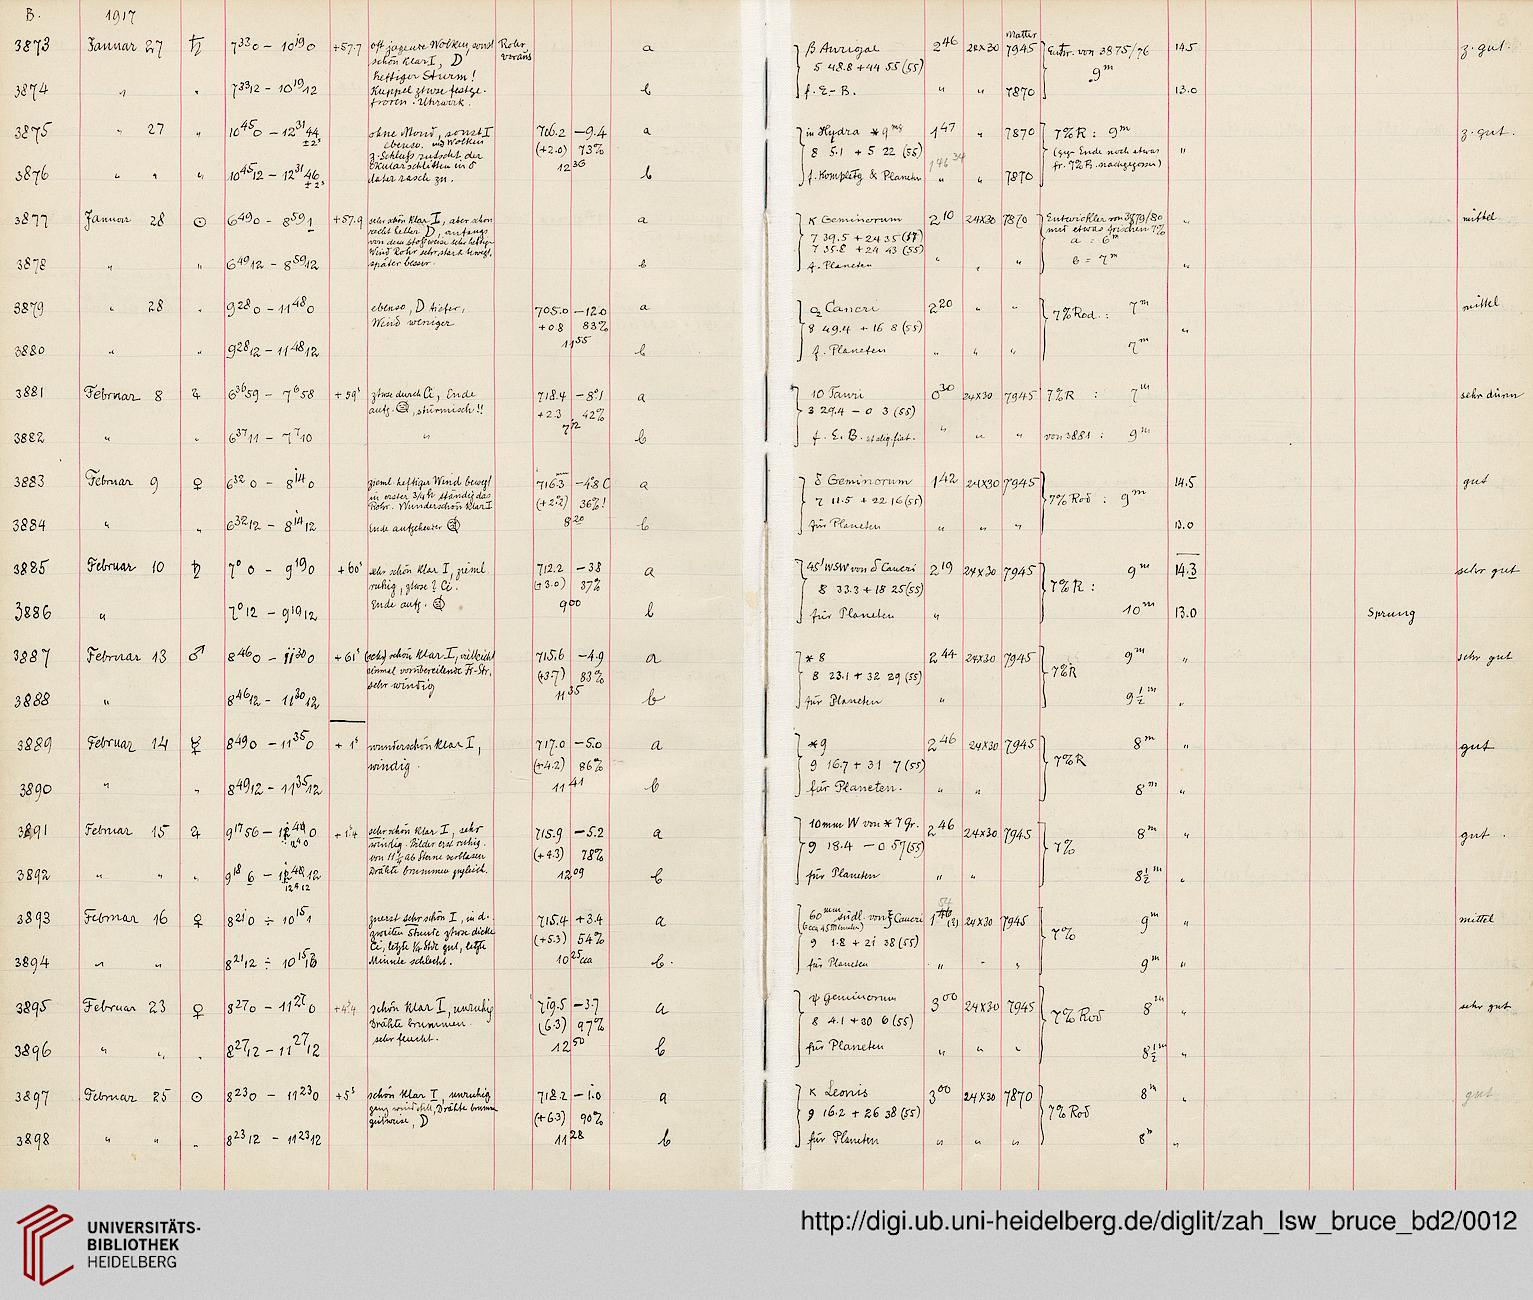 B. 1917
3873 Januar 27 ♄ 7 33 0 – 10 19 0 +57.7 oft jagende Wolken, sonst Rohr a β Aurigae 2 46 24×30 Matter 7945 Entw. von 3875/76 14.5 z. gut.
schön klar I, D voraus 5 48.8 +44 55 (55) 9m
heftiger Sturm!
3874 " " 7 33 12 – 10 19 12 Kuppel etwas festge- b f. E.-B. " " 7870 13.0
froren. Uhrwerk.
3875 " 27 " 10 45 0 – 12 31 44 ohne Mond, sonst I 706.2 –9.4 a in Hydra * 9 mg 1 47 " 7870 7% R : 9m z. gut.
± 2s ebenso. und Wolken (+2.0) 73% 8 5.1 + 5 22 (55) (geg. Ende noch etwas "
z. Schluß rutscht der 12 36 1 46 34 fr. 7% R. nachgegossen)
3876 " " " 10 45 12 – 12 31 46 Okularschlitten in δ b f. Komplettg & Planeten " " 7870
± 2s daher rasch zu.
3877 Januar 28 ☉ 6 49 0 – 8 59 1 +57.9 sehr schön klar I, aber schon a κ Geminorum 2 10 24×30 7870 Entwickler von 3879/80 " mittel
recht heller D, anfangs 7 39.5 + 24 35 (17) und etwas frischen 7%
von dem stoßweise sehr heftigen 7 35.8 + 24 43 (55) a = 6m
Wind Rohr sehr stark bewegt,
3878 " " 6 49 12 – 8 59 12 später besser. b f. Planeten " " " b = 7m "
3879 " 28 " 9 28 0 – 11 48 0 ebenso, D tiefer, 705.0 –12.0 a Cancri 2 20 " " 7% Rod. : 7m mittel
Wind weniger +0.8 83% 8 49.4 + 16 8 (55) "
11 55
3880 " " 9 28 12 – 11 48 12 b f. Planeten " " " 7m
3881 Februar 8 ♃ 6 36 59 – 7 6 58 +59s etwas durch Ci, Ende 718.4 –8.1 a 10 Tauri 0 30 24×30 7945 7% R : 7m sehr dünn
aufg., stürmisch!! +2.3 42% 3 29.4 – 0 3 (55)
7 12
3882 " " 6 37 11 – 7 7 10 " b f. E. B. " " " von 3881 : 9m
3883 Februar 9 ♀ 6 32 0 – 8 14 0 zieml. heftiger Wind bewegt 716.3 –4.8 C a δ Geminorum 1 42 24×30 7945 7% Rod : 9m 14.5 gut
in erster 3/4 h ständig das (+2.2) 36%! 7 11.5 + 22 16 (55)
Rohr. Wunderschön klar I 8 20
3884 " " 6 32 12 – 8 14 12 Ende aufgehender b für Planeten " " " 13.0
3885 Februar 10 ♄ 7 0 0 – 9 19 0 +60s sehr schön klar I, zieml. 712.2 –3.8 a 45' WSW von δ Cancri 2 19 24×30 7945 7% R : 9m 14.3 sehr gut
ruhig, etwas? Ci. (+3.0) 37% 8 33.3 + 18 25 (55)
Ende aufg. 9 00
3886 " 7 0 12 – 9 19 12 b für Planeten " 10m 13.0 Sprung
3887 Februar 13 ♂ 8 46 0 – 11 30 0 +61s schön klar I, vielleicht 715.6 –4.9 a * 8 2 44 24×30 7945 7% R 9m " sehr gut
einmal vorübereilende Fr-Str, (+3.7) 83% 8 23.1 + 32 29 (55)
sehr windig 11 35
3888 " 8 46 12 – 11 30 12 b für Planeten " 9 1/2 m "
3889 Februar 14 ☿ 8 49 0 – 11 35 0 + 1s wunderschön klar I, 717.0 –5.0 a * 9 2 46 24×30 7945 7% R 8m " gut
windig. (+4.2) 86% 9 16.7 + 31 7 (55)
11 41
3890 " " 8 49 12 – 11 35 12 b für Planeten. " " 8m "
3891 Februar 15 ♃ 9 17 56 – 12 4 0 sehr schön klar I, sehr 715.9 –5.2 a 10mm W von * 7 Gr. 2 46 24×30 7945 7% 8m " gut.
windig. Bilder erst ruhig. (+4.3) 78% 9 18.4 – 0 57 (55)
von 11 1/2 ab Sterne verblasen 12 09
3892 " " " 9 18 6 – 12 4 12 Drähte brummen zugleich. b für Planeten " " 8 1/2 m "
3893 Februar 16 ♀ 8 21 0 ÷ 10 15 1 zuerst sehr schön I, in d. 715.4 +3.4 a 60mm südl. von ξ Cancri 1 54 24×30 7945 7% 9m " mittel
zweiten Stunde etwas dicke (+5.3) 54% (6 ca 45 Minuten)
Ci, letzte 1/4 Stde gut, letzte 10 25 ca 9 1.8 + 21 38 (55)
3894 " " 8 21 12 ÷ 10 15 13 Minute schlecht. b. für Planeten " " " 9m "
3895 Februar 23 ♀ 8 27 0 – 11 27 0 schön klar I, unruhig 719.5 –3.7 a ψ Geminorum 3 00 24×30 7945 7% Rod 8m " sehr gut
Drähte brummen. (6.3) 97% 8 4.1 + 30 6 (55)
sehr feucht. 12 50
3896 " " " 8 27 12 – 11 27 12 b für Planeten " " " 8 1/2 m "
3897 Februar 25 ☉ 8 23 0 – 11 23 0 +5s schön klar I, unruhig 718.2 –1.0 a κ Leonis 3 00 24×30 7870 7% Rod 8m " gut
ganz windstill, Drähte brumm (+6.3) 90% 9 16.2 + 26 38 (55)
zeitweise, D 11 28
3898 " " " 8 23 12 – 11 23 12 b für Planeten " " " 8m "
UNIVERSITÄTS-
BIBLIOTHEK
HEIDELBERG
http://digi.ub.uni-heidelberg.de/diglit/zah_lsw_bruce_bd2/0012